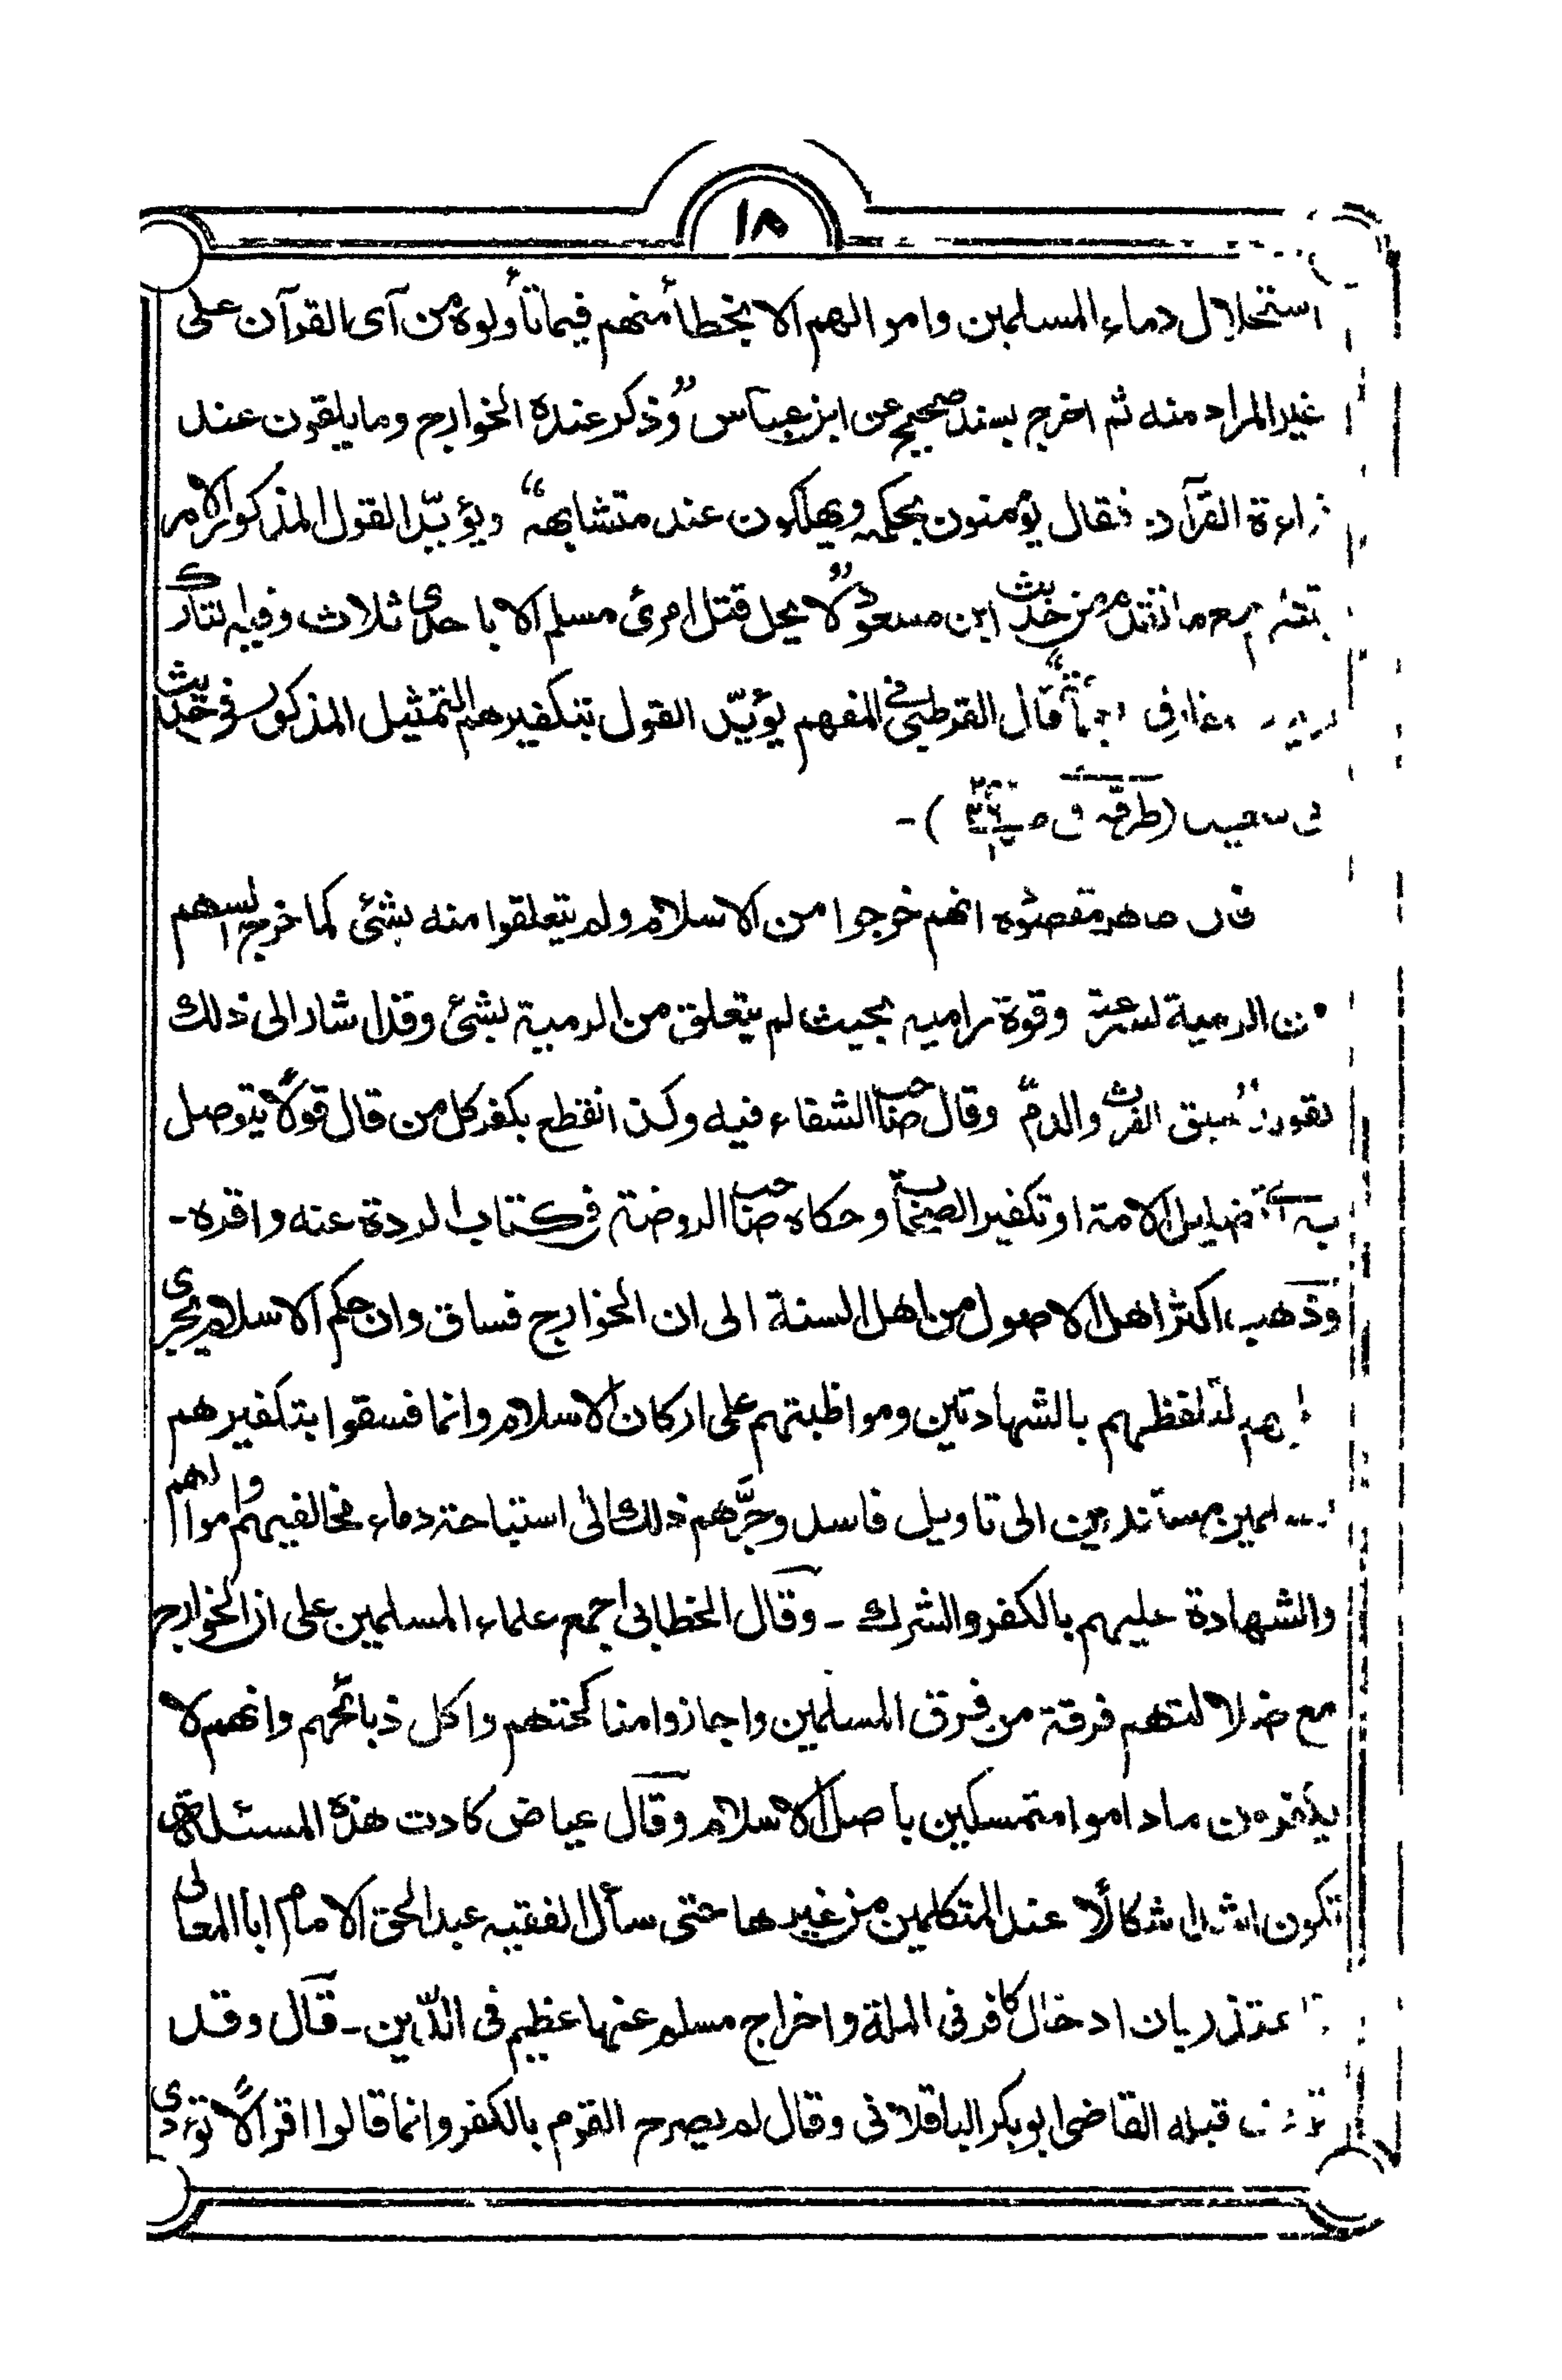 ١٨
استحلال دماء المسلمين واموالهم الا بخطأ منهم فيما تأولوه من آى القرآن على
غير المراد منه ثم اخرج بسند صحيح عن ابن عباس "وذكر عنده الخوارج وما يلقون عند
القرآن فقال يؤمنون بمحكمه ويهلكون عند متشابهه" ويؤيّد القول المذكور الامر
من حديث ابن مسعود "لا يحل قتل امرئ مسلم الا باحدى ثلاث وفيه التارك
قال القرطبى فى المفهم يؤيّد القول بتكفيرهم التمثيل المذكور فى حديث
سعيد (طرقه
مقصوده انهم خرجوا من الاسلام ولم يتعلقوا منه بشئ كما خرج السهم
من الرمية لسرعته وقوة راميه بحيث لم يتعلق من الرمية بشئ وقد اشار الى ذلك
بقوله "سبق الفرث والدم" وقال صاحب الشفاء فيه وكذا نقطع بكفر كل من قال قولا يتوصل
به تضليل الامة او تكفير الصحابة وحكاه صاحب الروضة فى كتاب الردة عنه واقره-
وذهب اكثر اهل الاصول من اهل السنة الى ان الخوارج فساق وان حكم الاسلام يجرى
لتلفظهم بالشهادتين ومواظبتهم على اركان الاسلام وانما فسقوا بتكفيرهم
مستندين الى تاويل فاسد وجَرَّهم ذلك الى استباحة دماء مخالفيهم واموالهم
والشهادة عليهم بالكفر والشرك - وقال الخطابى اجمع علماء المسلمين على ان الخوارج
مع ضلالتهم فرقة من فرق المسلمين واجازوا مناكحتهم واكل ذبائحهم وانهم لا
يكفرون ماداموا متمسكين باصل الاسلام وقال عياض كادت هذه المسئلة
تكون اشد اشكالًا عند المتكلمين من غيرها حتى سأل الفقيه عبد الحق الامام ابا المعالى
بان ادخال كافر فى الملة واخراج مسلم عنها عظيم فى الدّين - قال وقد
قبله القاضى ابو بكر الباقلانى وقال لم يصرح القوم بالكفر وانما قالوا اقوالًا تؤدى